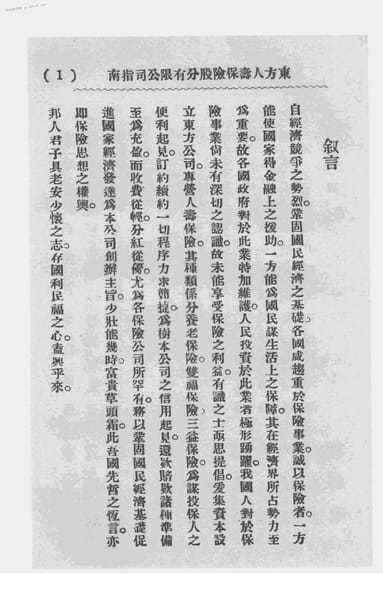 東方人壽保險股分有限公司指南
( 1 )
叙言
自經濟競爭之勢烈。鞏固國民經濟之基礎。各國咸趨重於保險事業。誠以保險者。一方
能使國家得金融上之援助。一方能爲國民謀生活上之保障。其在經濟界所占勢力至
爲重要。故各國政府對於此業特加維護。人民投資於此業者極形踴躍。我國人對於保
險事業尙未有深切之認識。故未能享受保險之利益。有識之士亟思提倡。爰集資本設
立東方公司。專營人壽保險。其種類係分養老保險。雙福保險。三益保險。爲謀投保人之
便利起見。訂約續約一切程序力求簡捷。爲樹本公司之信用起見。還欵賠欵諸種準備
至爲充盈。而收費從輕。分紅從優。尤爲各保險公司所罕有。務以鞏固國民經濟基礎。促
進國家經濟發達。爲本公司創辦主旨。少壯能幾時。富貴草頭霜。此吾國先哲之恆言。亦
即保險思想之權輿。
邦人君子具老安少懷之志。存國利民福之心。盍興乎來。